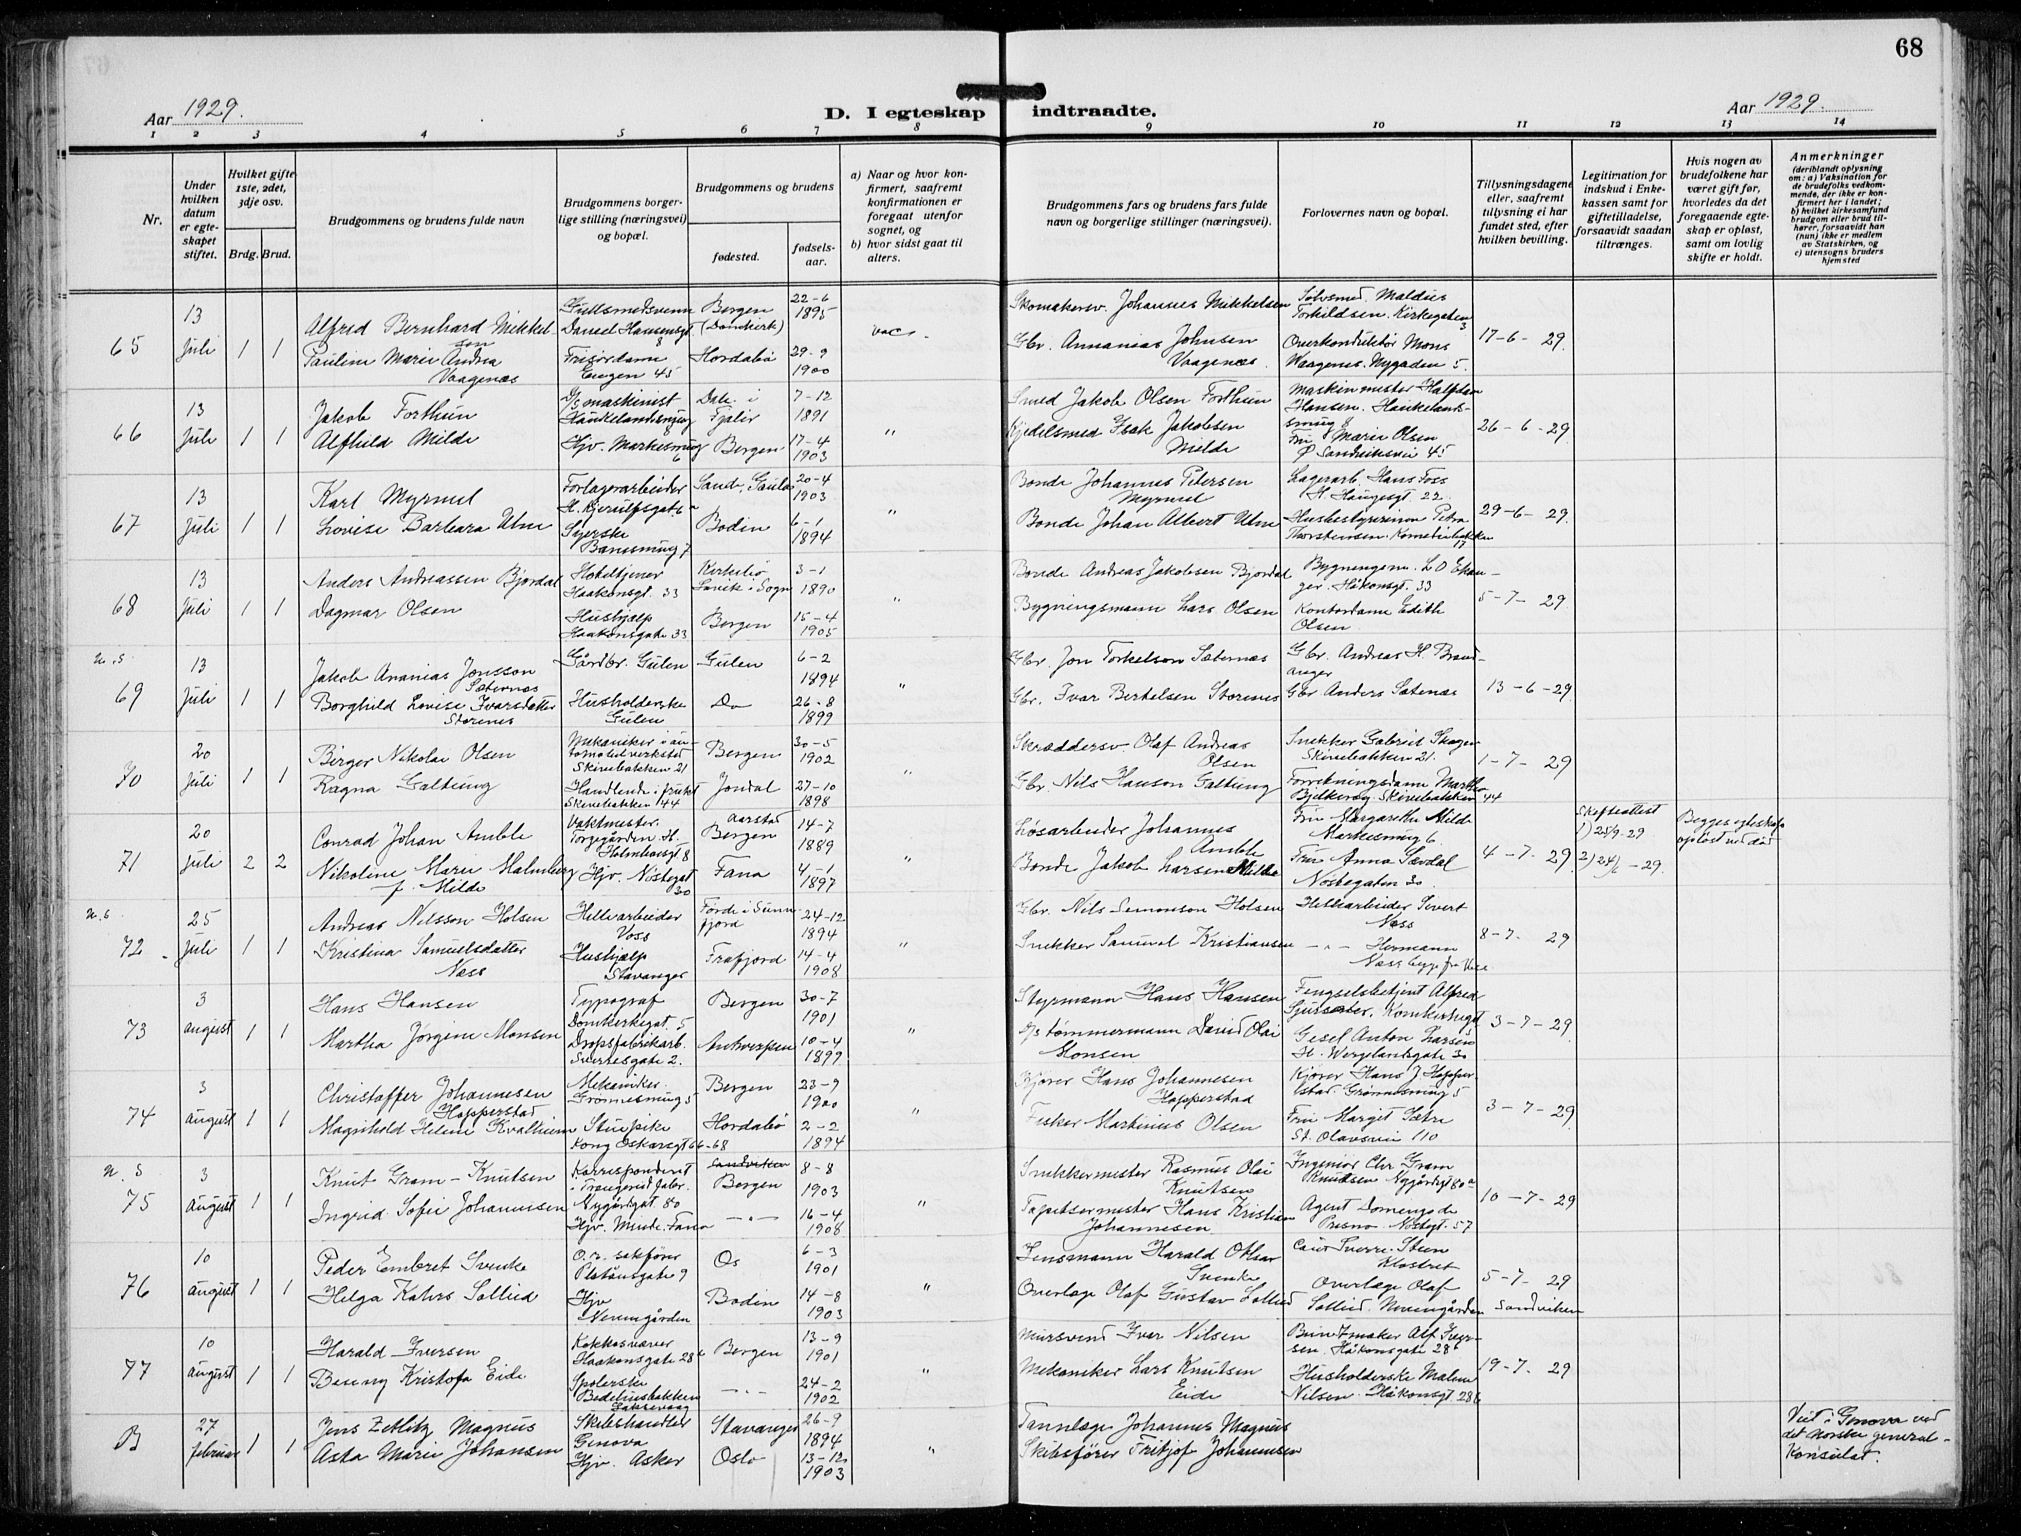 68
Aar 1929.
D. I egteskap indtraadte.
Aar 1929.
1 2 3 4 5 6 7 8 9 10 11 12 13 14
Nr.
Under hvilken datum er egteskapet stiftet.
Hvilket gifte 1ste, 2det, 3dje osv.
Brdg. Brud.
Brudgommens og brudens fulde navn
Brudgommens borgerlige stilling (næringsvei) og bopæl.
Brudgommens og brudens
fødested.
fødselsaar.
a) Naar og hvor konfirmert, saafremt konfirmationen er foregaat utenfor sognet, og
b) hvor sidst gaat til alters.
Brudgommens fars og brudens fars fulde navn og borgerlige stillinger (næringsvei).
Forlovernes navn og bopæl.
Tillysningsdagene eller, saafremt tillysning ei har fundet sted, efter hvilken bevilling.
Legitimation for indskud i Enkekassen samt for giftetilladelse, forsaavidt saadan tiltrænges.
Hvis nogen av brudefolkene har været gift før, hvorledes da det foregaaende egteskap er opløst, samt om lovlig skifte er holdt.
Anmerkninger (deriblandt oplysning om: a) Vaksination for de brudefolks vedkommende, der ikke er konfirmert her i landet; b) hvilket kirkesamfund brudgom eller brud tilhører, forsaavidt han (hun) ikke er medlem av Statskirken, og c) utensogns bruders hjemsted
65 13 Juli 1 1
Alfred Bernhard Mikkelsen
Gullsmedsvenn Daniel Hansensgt. 8
Bergen (Domkirk)
22-6 1895
vac.
Skomakersv. Johannes Mikkelsen
Sølvsmed. Maldius Torkildsen. Kirkegaten 3
17-6-29.
Pauline Marie Andrea Vaagenes
Frisørdame Engen 45
Hordabø
29-9 1900
Gbr. Annanias Johnsen Vaagenes.
Overkonduktør Mons Waagenes. Nygaden 5.
66 13 Juli 1 1
Jakob Forthun
D/S maskinist Haukelandsmug 8
Dale i Fjaler
7-12 1891
"
Smed Jakob Olsen Forthun
Maskinmester Halfdan Hansen. Haukelandsmug 8
26-6-29
Alfhild Milde
Hjv. Markesmug 6
Bergen
17-4 1903
Kjedelsmed Isak Jakobsen Milde
Fru Marie Olsen Ø Sandviksvei 45
67 13 Juli 1 1
Karl Myrmel
Forlagerarbeider H. Kjerulfsgate
Sande, Gaular
20-4 1903
"
Bonde Johannes Petersen Myrmel
Lagerarb. Hans Foss H. Haugesgt. 22.
29-6-29.
Lovise Barbara Utne
Syerske Banesmug 7
Bodin
6-1 1894
Bonde Johan Albert Utne
Husbestyrerinne Petra Thorstensen. Komediebakken 17
68 13 Juli 1 1
Anders Andreassen Bjordal
Hoteltjener Haakonsgt. 33
Kirkebø Lavik i Sogn
3-1 1890
"
Bonde Andreas Jakobsen Bjordal
L O Ekanger. Håkonsgt. 33
5-7-29
Dagmar Olsen
Hushjælp Haakonsgate 33
Bergen
15-4 1905
Bygningsmann Lars Olsen
Kontordame Edith Olsen
u. s
69 13 Juli 1 1
Jakob Ananias Jonsson Sæternes
Gårdbr. Gulen
Gulen
6-2 1894
"
Gbr. Jon Torkelson Sæternes
Gbr. Andreas H. Brandanger
13-6-29
Borghild Lovise Ivarsdatter Storenes
Husholderske Gulen
Do
26-8 1899
Gbr. Ivar Bertelsen Storenes
Gbr Anders Sætenes
70 20 Juli 1 1
Birger Nikolai Olsen
Mekaniker i automobilverksted Skivebakken 21
Bergen
30-5 1902
"
Skræddersv. Olaf Andreas Olsen
Snekker Gabriel Skagen Skivebakken 21.
1-7-29
Ragna Galtung
Handlende i frukt Skivebakken 44
Jondal
27-10 1898
Gbr. Nils Hanson Galtung
Forretningsdame Martha Bjelkerøy. Skivebakken 44
71 20 Juli 2 2
Conrad Johan Amble
Vaktmester. Torggården H. Holmboesgt 8
Aarstad Bergen
14-7 1889
"
Løsarbeider Johannes Amble
Fru Margarethe Milde Markesmug 6.
4-7-29
Skifteattest 1) 25/9-29. 2) 24/6-29.
Begges egteskap opløst ved død
Nikoline Marie Malmberg f. Milde
Hjv. Nøstegt 30
Fana
4-1 1897
Bonde Jakob Larsen Milde
Fru Anna Sævdal Nøstegaten 30.
u. 6
72 25 Juli 1 1
Andreas Nilsson Holsen
Hellearbeider Voss
Førde i Sunnfjord
24-12 1894
"
Gbr. Nils Semonson Holsen
Hellearbeider Severt Næss
8-7-29
Kristina Samuelsdatter Næss
Hushjælp Stavanger
Frafjord
14-4 1908
Snekker Samuel Kristiansen
-"- Hermann Næss begge fra Voss
73 3 august 1 1
Hans Hansen
Typograf Domkirkegt. 5
Bergen
30-7 1901
"
Styrmann Hans Hansen
Fengselsbetjent Alfred Domkirkegt 5
3-7-29
Martha Jørgine Monsen
Dropsfabrikarb. Sverresgate 2.
Antwerpen
10-4 1899
D/S tømmermann David Olai Monsen
Gesel Anton Larsen H. Wergelandsgate 30
74 3 august 1 1
Christoffer Johannesen Hopperstad
Mekaniker. Grønnesmug 5
Bergen
23-9 1900
"
Kjører Hans Johannesen Hopperstad
Kjører Hans J Hopperstad. Grønnesmug 5
3-7-29
Magnhild Helene Kvalheim
Stuepike Kong Oskarsgt 66-68
Hordabø
2-2 1894
Fisker Martinus Olsen
Fru Margit Sætre St. Olavsvei 110
u. s
75 3 august 1 1
Knut Gram-Knutsen
Korrespondent i Trengereid fabr. Nygårdsgt. 80
Sandviken Bergen
8-8 1903
"
Snekkermester Rasmus Olai Knutsen
Ingeniør Chr. Gram Knutsen Nygårdsgt 80a
10-7-29
Ingrid Sofie Johannesen
Hjv. Minde. Fana
-"-
16-4 1908
Tapetsermester Hans Kristian Johannesen
Agent Domengo de Presno Nøstegt. 57
76 10 august 1 1
Peder Embret Svenke
O.r. sakfører Platånsgate 9
Os
6-3 1901
"
Lensmann Harald Svenke
Sverre Steen Klostret
5-7-29
Helga Kahrs Sollied
Hjv Neevengården
Bodin
14-8 1903
Overlæge Olaf Gustav Sollied
Overlæge Olaf Sollied. Neevengården Sandviken
77 10 august 1 1
Harald Iversen
Kokkesvarer Haakonsgate 28b
Bergen
13-9 1901
"
Mursvend Ivar Nilsen
Buntmaker Alf Iversen. Håkonsgate 28b
19-7-29
Benny Kristofa Eide
Spolerske Bedehusbakken Laksevaag
-"-
24-2 1902
Mekaniker Lars Knutsen Eide
Husholderske Malene Nilsen. Håkonsgt. 28b
B 27 februar 1 1
Jens Zetlitz Magnus
Skibshandler Genova
Stavanger
26-9 1894
"
Tannlæge Johannes Magnus
Viet i Genova ved det norske general-Konsulat.
Asta Marie Johansen
Hjv. Asker
Oslo
13-12 1903
Skibsfører Fritjof Johannesen